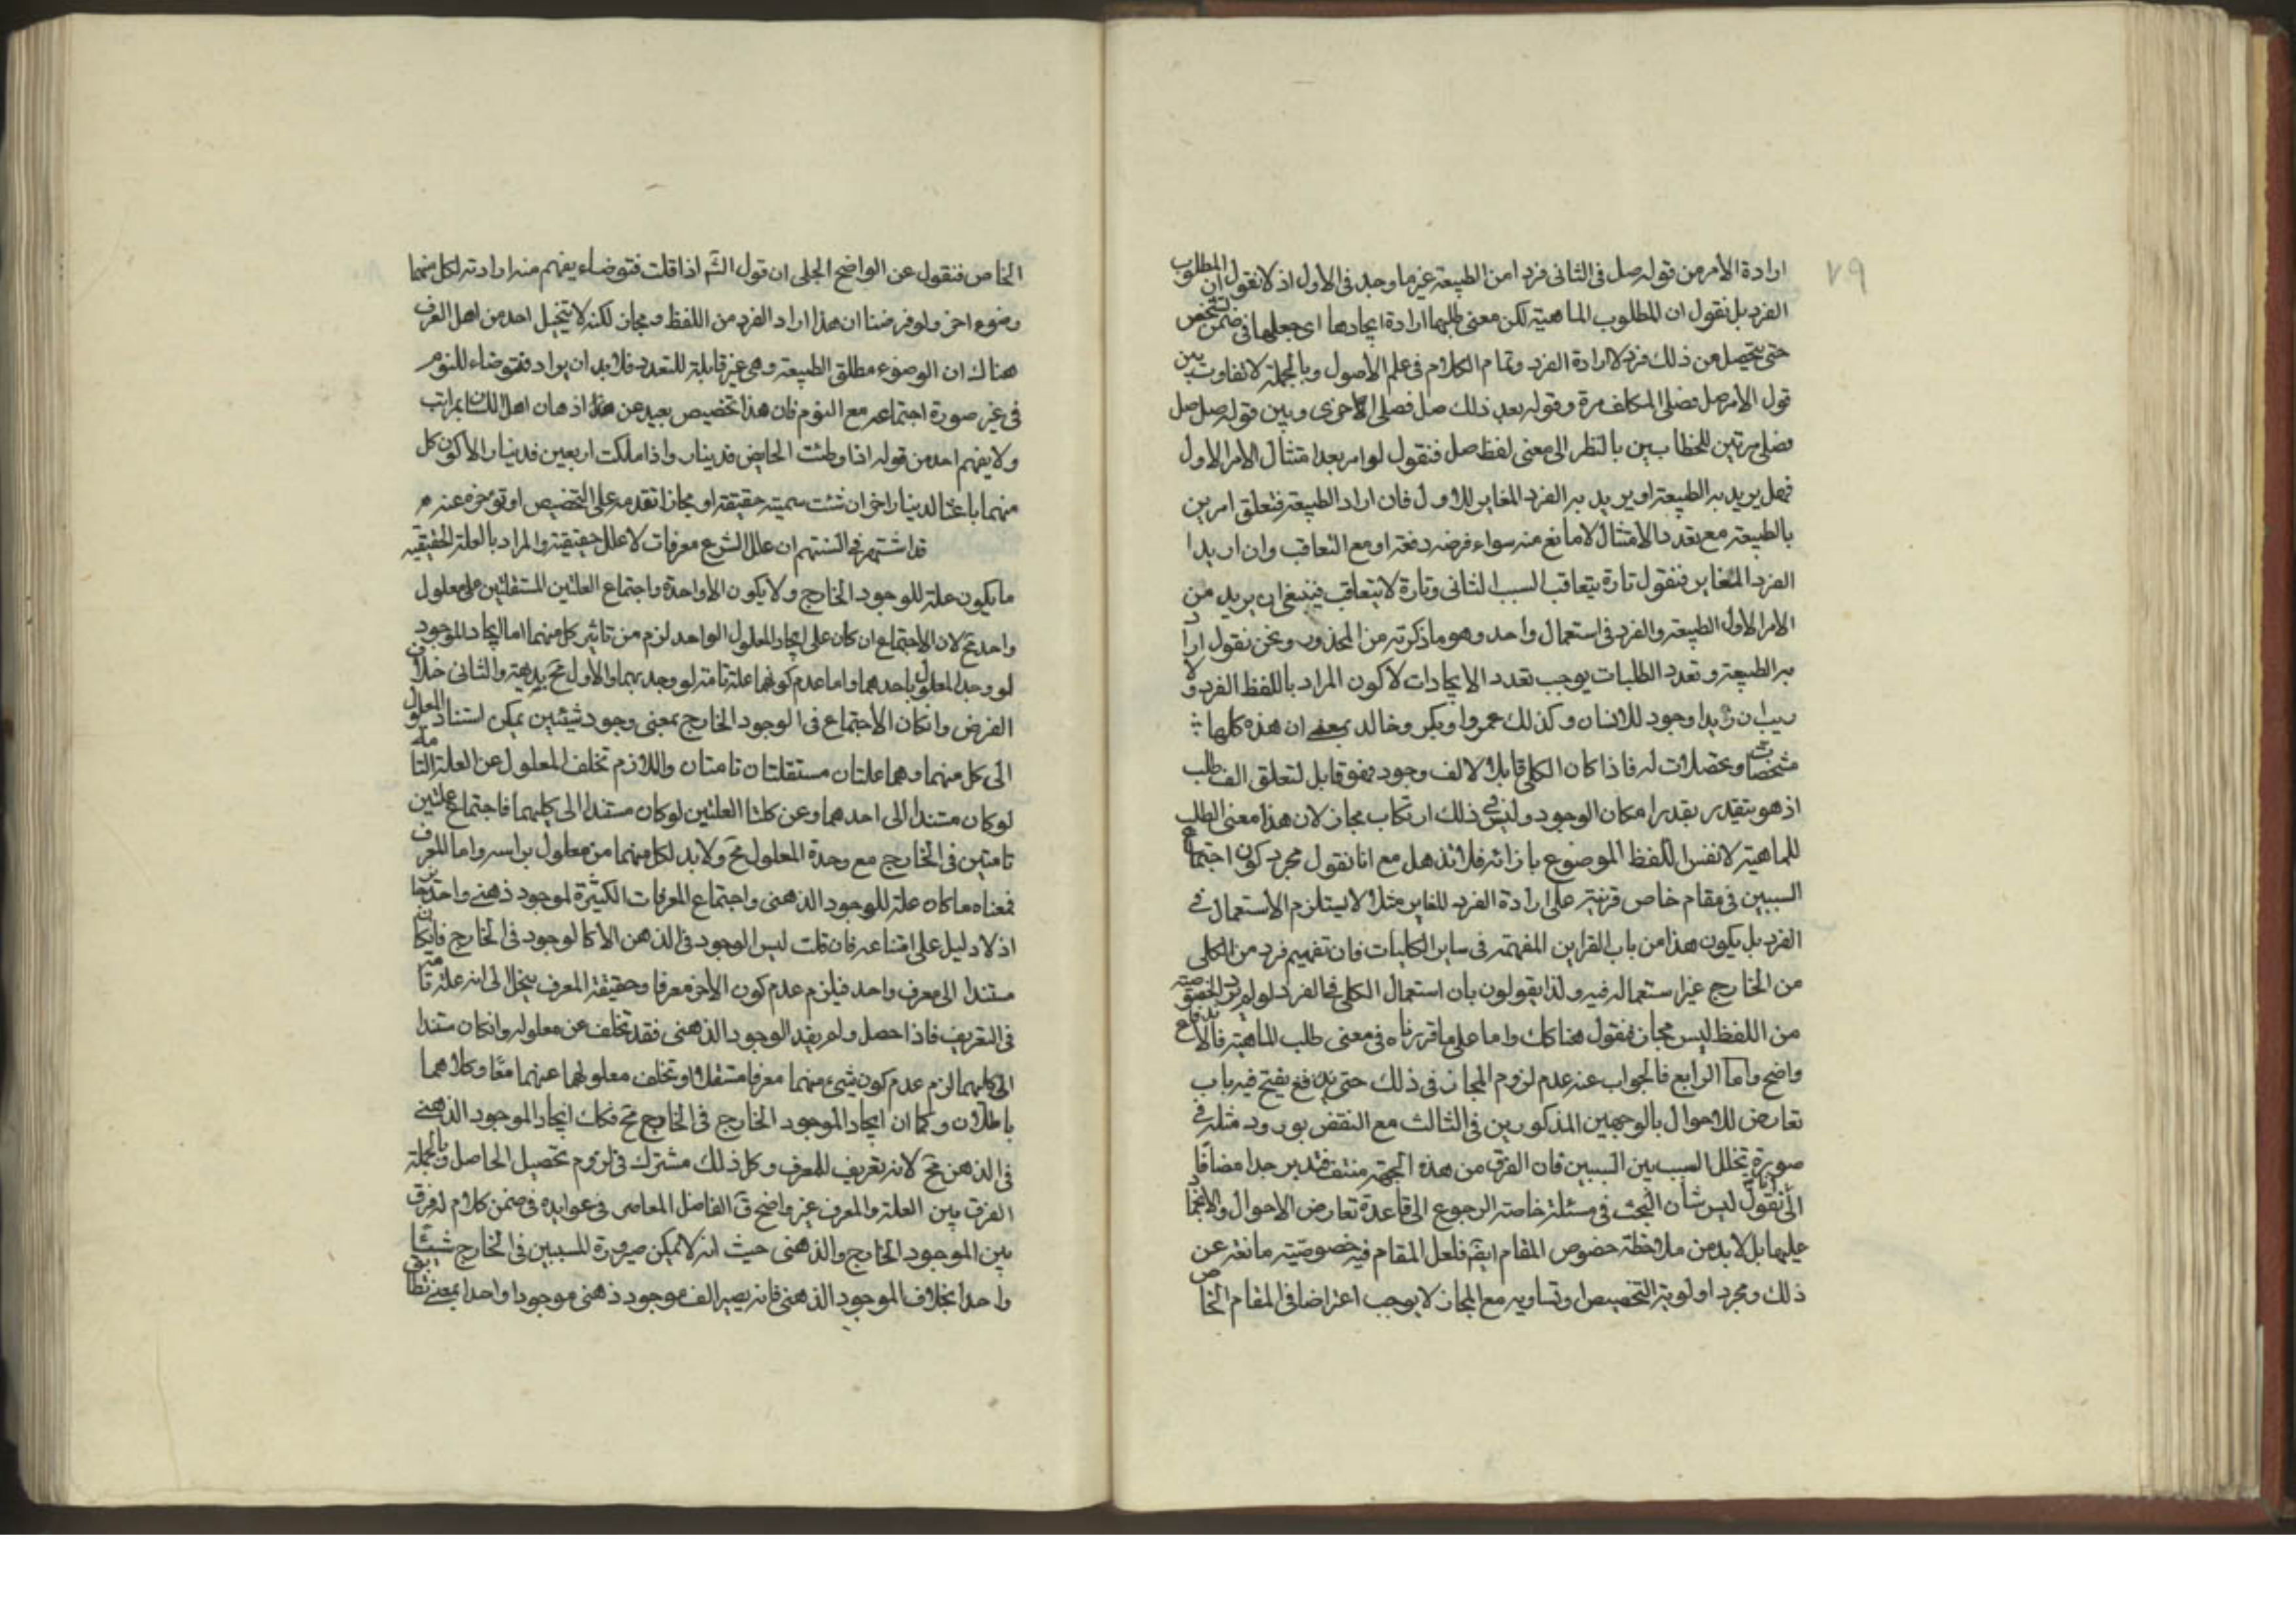 ٧٩
ارادة الأمر من قوله صل فى الثانى فردا من الطبيعة غير ما وجد فى الأول اذ لا نقول ان المطلوب
الفرد بل نقول ان المطلوب الماهية لكن معنى طلبها ارادة ايجادها اى جعلها فى ضمن الشخص
حتى يتحصل من ذلك فرد لا ارادة الفرد وتمام الكلام فى علم الأصول وبالجملة لا تفاوت بين
قول الأمر صل فصلى المكلف مرة وقوله بعد ذلك صل فصلى الاخرى وبين قوله صل صل
فصلى مرتين للخطابين بالنظر الى معنى لفظ صل فنقول لو امر بعد امتثال الامر الاول
فهل يريد به الطبيعة او يريد به الفرد المغاير للاول فان اراد الطبيعة فتعلق امرين
بالطبيعة مع تعدد الامتثال لا مانع منه سواء فرضه دفعة او مع التعاقب وان اريد
الفرد المغاير فنقول تارة يتعاقب السبب الثانى وتارة لا يتعاقب فينبغى ان يريد من
الامر الاول الطبيعة والفرد فى استعمال واحد وهو ما ذكرته من المحذور ونحن نقول اراد
به الطبيعة وتعدد الطلبات يوجب تعدد الايجادات لا كون المراد باللفظ الفرد ولا
ريب ان زيدا وجود للانسان وكذلك عمرو وبكر وخالد بمعنى ان هذه كلها
مشخصات ومحصلات له فاذا كان الكلى قابلا لالف وجود فهو قابل لتعلق الف طلب
اذ هو يتقدر بقدر امكان الوجود وليس فى ذلك ارتكاب مجاز لان هذا معنى الطلب
للماهية لا نفس اللفظ الموضوع بازائه فلا تذهل مع انا نقول مجرد كون اجتماع
السببين فى مقام خاص قرينة على ارادة الفرد المغاير مثلا لا يستلزم الاستعمال فى
الفرد بل يكون هذا من باب القراين المفهمة فى ساير الكليات فان تفهيم فرد من الكلى
من الخارج غير استعماله فيه ولذا يقولون بان استعمال الكلى فى الفرد لو لم يرد الخصوصية
من اللفظ ليس مجاز فنقول هنا كك واما على ما قررناه فى معنى طلب الماهية فالاندفاع
واضح واما الرابع فالجواب عنه عدم لزوم المجاز فى ذلك حتى يدفع يفتح فيه باب
تعارض الاحوال بالوجهين المذكورين فى الثالث مع النقض بورود مثله فى
صورة تخلل المسبب بين السببين فان الفرق من هذه الجهة منتف فتدبر جدا مضافا
الى انا نقول ليس شأن البحث فى مسئلة خاصة الرجوع الى قاعدة تعارض الاحوال والالتجاء
عليها بل لا بد من ملاحظة خصوص المقام ايضا فلعل المقام فيه خصوصية مانعة عن
ذلك ومجرد اولوية التخصيص او تساويه مع المجاز لا يوجب اعتراضا فى المقام الخاص
الخاص فنقول عن الواضح الجلى ان قول الش اذا قلت فتوضاء يفهم منه ارادته لكل منهما
وضوء اخر ولو فرضنا ان هذا اراد الفرد من اللفظ ومجاز لكنه لا يتخيل احد من اهل العرف
هناك ان الوضوء مطلق الطبيعة وهى غير قابلة للتعدد فلا بد ان يراد فتوضاء للنوم
فى غير صورة اجتماعه مع النوم فان هذا تخصيص بعيد عن اذهان اهل اللسان بمراتب
ولا يفهم احد من قوله اذا وطئت الحايض فدينار واذا ملكت اربعين فدينار الا كون كل
منهما باعثا لدينار اخر ان شئت سميته حقيقة او مجازا تقدمه على التخصيص او تؤخره عنه
قد اشتهر فى السنتهم ان علل الشرع معرفات لا علل حقيقية والمراد بالعلة الحقيقية
ما يكون علة للوجود الخارج ولا يكون الا واحدة واجتماع العلتين المستقلتين على معلول
واحد مح لان الاجتماع ان كان على ايجاد المعلول الواحد لزم من تاثير كل منهما اما ايجاد الموجود
لو وجد المعلول باحدهما واما عدم كونهما علة تامة لو وجد بهما والاول مح بديهة والثانى خلاف
الفرض وان كان الاجتماع فى الوجود الخارج بمعنى وجود شيئين يمكن استناد المعلول
الى كل منهما وهما علتان مستقلتان تامتان واللازم تخلف المعلول عن العلة التامة
لو كان مستندا الى احدهما وعن كلتا العلتين لو كان مستندا الى كليهما فاجتماع علتين
تامتين فى الخارج مع وحدة المعلول مح ولا بد لكل منهما من معلول براسه واما المعرف
فمعناه ما كان علة للوجود الذهنى واجتماع المعرفات الكثيرة لموجود ذهنى واحد جايز
اذ لا دليل على امتناعه فان قلت ليس الوجود فى الذهن الا كالوجود فى الخارج فان كان
مستندا الى معرف واحد فيلزم عدم كون الاخر معرفا وحقيقة المعرف ينحل الى انه علة تامة
فى التعريف فاذا حصل ولم يفد الوجود الذهنى فقد تخلف عن معلوله وان كان مستندا
الى كليهما لزم عدم كون شىء منهما معرفا مستقلا او تخلف معلولهما عنهما معا وكلاهما
باطلان وكما ان ايجاد الموجود الخارج فى الخارج مح فكك ايجاد الموجود الذهنى
فى الذهن مح لانه تعريف للمعرف وكل ذلك مشترك فى لزوم تحصيل الحاصل وبالجملة
الفرق بين العلة والمعرف غير واضح ق الفاضل المعاصر فى عوايده فى ضمن كلام له فرق
بين الموجود الخارج والذهنى حيث انه لا يمكن صيرورة المسببين فى الخارج شيئا
واحدا بخلاف الموجود الذهنى فانه يصير الف موجود ذهنى موجودا واحدا بمعنى تطابق